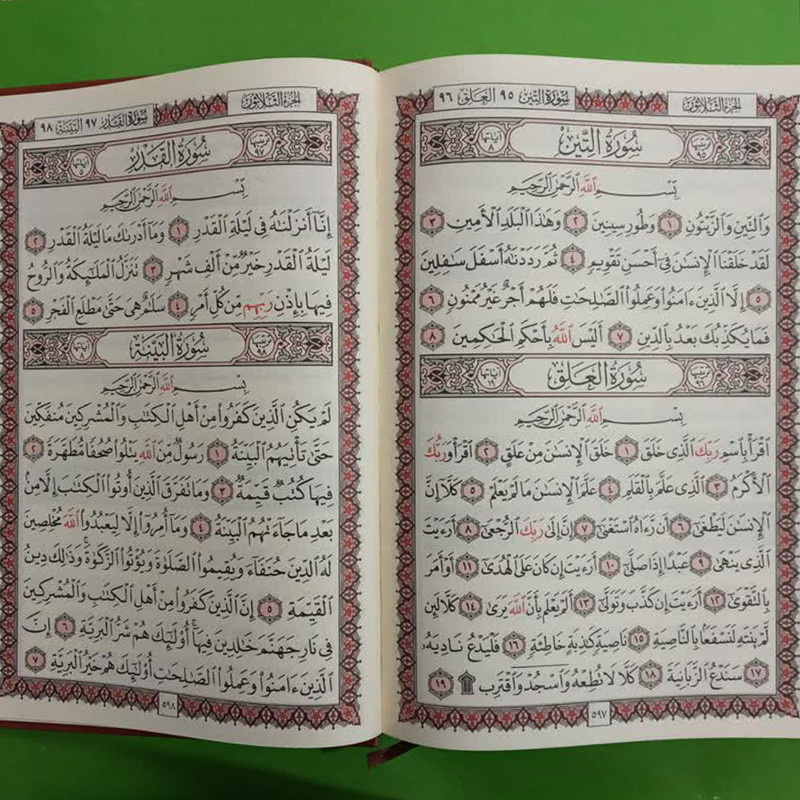 الجزء الثلاثون
سورة التين ٩٥ العلق ٩٦
ترتيبها ٩٥ سُورَةُ التِّينِ آياتها ٨
بِسْمِ اللَّهِ الرَّحْمَٰنِ الرَّحِيمِ
وَٱلتِّينِ وَٱلزَّيْتُونِ ١ وَطُورِ سِينِينَ ٢ وَهَٰذَا ٱلْبَلَدِ ٱلْأَمِينِ ٣
لَقَدْ خَلَقْنَا ٱلْإِنسَٰنَ فِىٓ أَحْسَنِ تَقْوِيمٍ ٤ ثُمَّ رَدَدْنَٰهُ أَسْفَلَ سَٰفِلِينَ
٥ إِلَّا ٱلَّذِينَ ءَامَنُوا۟ وَعَمِلُوا۟ ٱلصَّٰلِحَٰتِ فَلَهُمْ أَجْرٌ غَيْرُ مَمْنُونٍ ٦
فَمَا يُكَذِّبُكَ بَعْدُ بِٱلدِّينِ ٧ أَلَيْسَ ٱللَّهُ بِأَحْكَمِ ٱلْحَٰكِمِينَ ٨
ترتيبها ٩٦ سُورَةُ العَلَقِ آياتها ١٩
بِسْمِ اللَّهِ الرَّحْمَٰنِ الرَّحِيمِ
ٱقْرَأْ بِٱسْمِ رَبِّكَ ٱلَّذِى خَلَقَ ١ خَلَقَ ٱلْإِنسَٰنَ مِنْ عَلَقٍ ٢ ٱقْرَأْ وَرَبُّكَ
ٱلْأَكْرَمُ ٣ ٱلَّذِى عَلَّمَ بِٱلْقَلَمِ ٤ عَلَّمَ ٱلْإِنسَٰنَ مَا لَمْ يَعْلَمْ ٥ كَلَّآ إِنَّ
ٱلْإِنسَٰنَ لَيَطْغَىٰٓ ٦ أَن رَّءَاهُ ٱسْتَغْنَىٰٓ ٧ إِنَّ إِلَىٰ رَبِّكَ ٱلرُّجْعَىٰٓ ٨ أَرَءَيْتَ
ٱلَّذِى يَنْهَىٰ ٩ عَبْدًا إِذَا صَلَّىٰٓ ١٠ أَرَءَيْتَ إِن كَانَ عَلَى ٱلْهُدَىٰٓ ١١ أَوْ أَمَرَ
بِٱلتَّقْوَىٰٓ ١٢ أَرَءَيْتَ إِن كَذَّبَ وَتَوَلَّىٰٓ ١٣ أَلَمْ يَعْلَم بِأَنَّ ٱللَّهَ يَرَىٰ ١٤ كَلَّا لَئِن
لَّمْ يَنتَهِ لَنَسْفَعًۢا بِٱلنَّاصِيَةِ ١٥ نَاصِيَةٍ كَٰذِبَةٍ خَاطِئَةٍ ١٦ فَلْيَدْعُ نَادِيَهُۥ
١٧ سَنَدْعُ ٱلزَّبَانِيَةَ ١٨ كَلَّا لَا تُطِعْهُ وَٱسْجُدْ وَٱقْتَرِب ۩ ١٩
٥٩٧
الجزء الثلاثون
سورة القدر ٩٧ البينة ٩٨
ترتيبها ٩٧ سُورَةُ القَدْرِ آياتها ٥
بِسْمِ اللَّهِ الرَّحْمَٰنِ الرَّحِيمِ
إِنَّآ أَنزَلْنَٰهُ فِى لَيْلَةِ ٱلْقَدْرِ ١ وَمَآ أَدْرَىٰكَ مَا لَيْلَةُ ٱلْقَدْرِ ٢
لَيْلَةُ ٱلْقَدْرِ خَيْرٌ مِّنْ أَلْفِ شَهْرٍ ٣ تَنَزَّلُ ٱلْمَلَٰٓئِكَةُ وَٱلرُّوحُ
فِيهَا بِإِذْنِ رَبِّهِم مِّن كُلِّ أَمْرٍ ٤ سَلَٰمٌ هِىَ حَتَّىٰ مَطْلَعِ ٱلْفَجْرِ ٥
ترتيبها ٩٨ سُورَةُ البَيِّنَةِ آياتها ٨
بِسْمِ اللَّهِ الرَّحْمَٰنِ الرَّحِيمِ
لَمْ يَكُنِ ٱلَّذِينَ كَفَرُوا۟ مِنْ أَهْلِ ٱلْكِتَٰبِ وَٱلْمُشْرِكِينَ مُنفَكِّينَ
حَتَّىٰ تَأْتِيَهُمُ ٱلْبَيِّنَةُ ١ رَسُولٌ مِّنَ ٱللَّهِ يَتْلُوا۟ صُحُفًا مُّطَهَّرَةً ٢
فِيهَا كُتُبٌ قَيِّمَةٌ ٣ وَمَا تَفَرَّقَ ٱلَّذِينَ أُوتُوا۟ ٱلْكِتَٰبَ إِلَّا مِنۢ
بَعْدِ مَا جَآءَتْهُمُ ٱلْبَيِّنَةُ ٤ وَمَآ أُمِرُوٓا۟ إِلَّا لِيَعْبُدُوا۟ ٱللَّهَ مُخْلِصِينَ
لَهُ ٱلدِّينَ حُنَفَآءَ وَيُقِيمُوا۟ ٱلصَّلَوٰةَ وَيُؤْتُوا۟ ٱلزَّكَوٰةَ وَذَٰلِكَ دِينُ
ٱلْقَيِّمَةِ ٥ إِنَّ ٱلَّذِينَ كَفَرُوا۟ مِنْ أَهْلِ ٱلْكِتَٰبِ وَٱلْمُشْرِكِينَ
فِى نَارِ جَهَنَّمَ خَٰلِدِينَ فِيهَآ أُو۟لَٰٓئِكَ هُمْ شَرُّ ٱلْبَرِيَّةِ ٦ إِنَّ
ٱلَّذِينَ ءَامَنُوا۟ وَعَمِلُوا۟ ٱلصَّٰلِحَٰتِ أُو۟لَٰٓئِكَ هُمْ خَيْرُ ٱلْبَرِيَّةِ ٧
٥٩٨